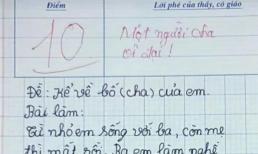 Điểm
Lời phê của thầy, cô giáo
10
Một người cha
vĩ đại !
Đề: Kể về bố (cha) của em.
Bài làm:
Từ nhỏ em sống với ba, còn mẹ
thì mất rồi. Ba em làm nghề